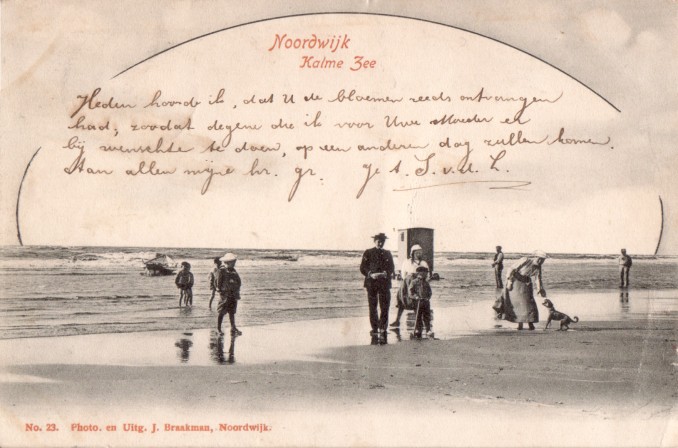 Noordwijk
Kalme Zee
Heden hoorde ik, dat U de bloemen reeds ontvangen
had, zoodat degene die ik voor Uwe Moeder en
bij wenschte te doen, op een anderen dag zullen komen.
Aan allen mijne hr. gr. get. S. v. d. L.
No. 23. Photo. en Uitg. J. Braakman, Noordwijk.